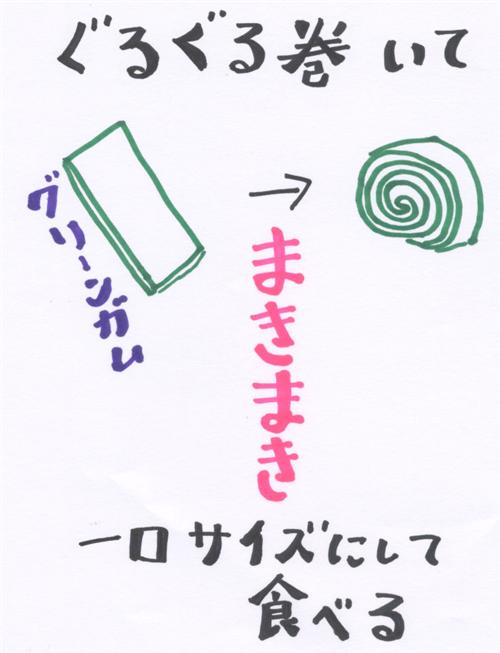 ぐるぐる巻いて
グリーンガム
まきまき
一口サイズにして
食べる